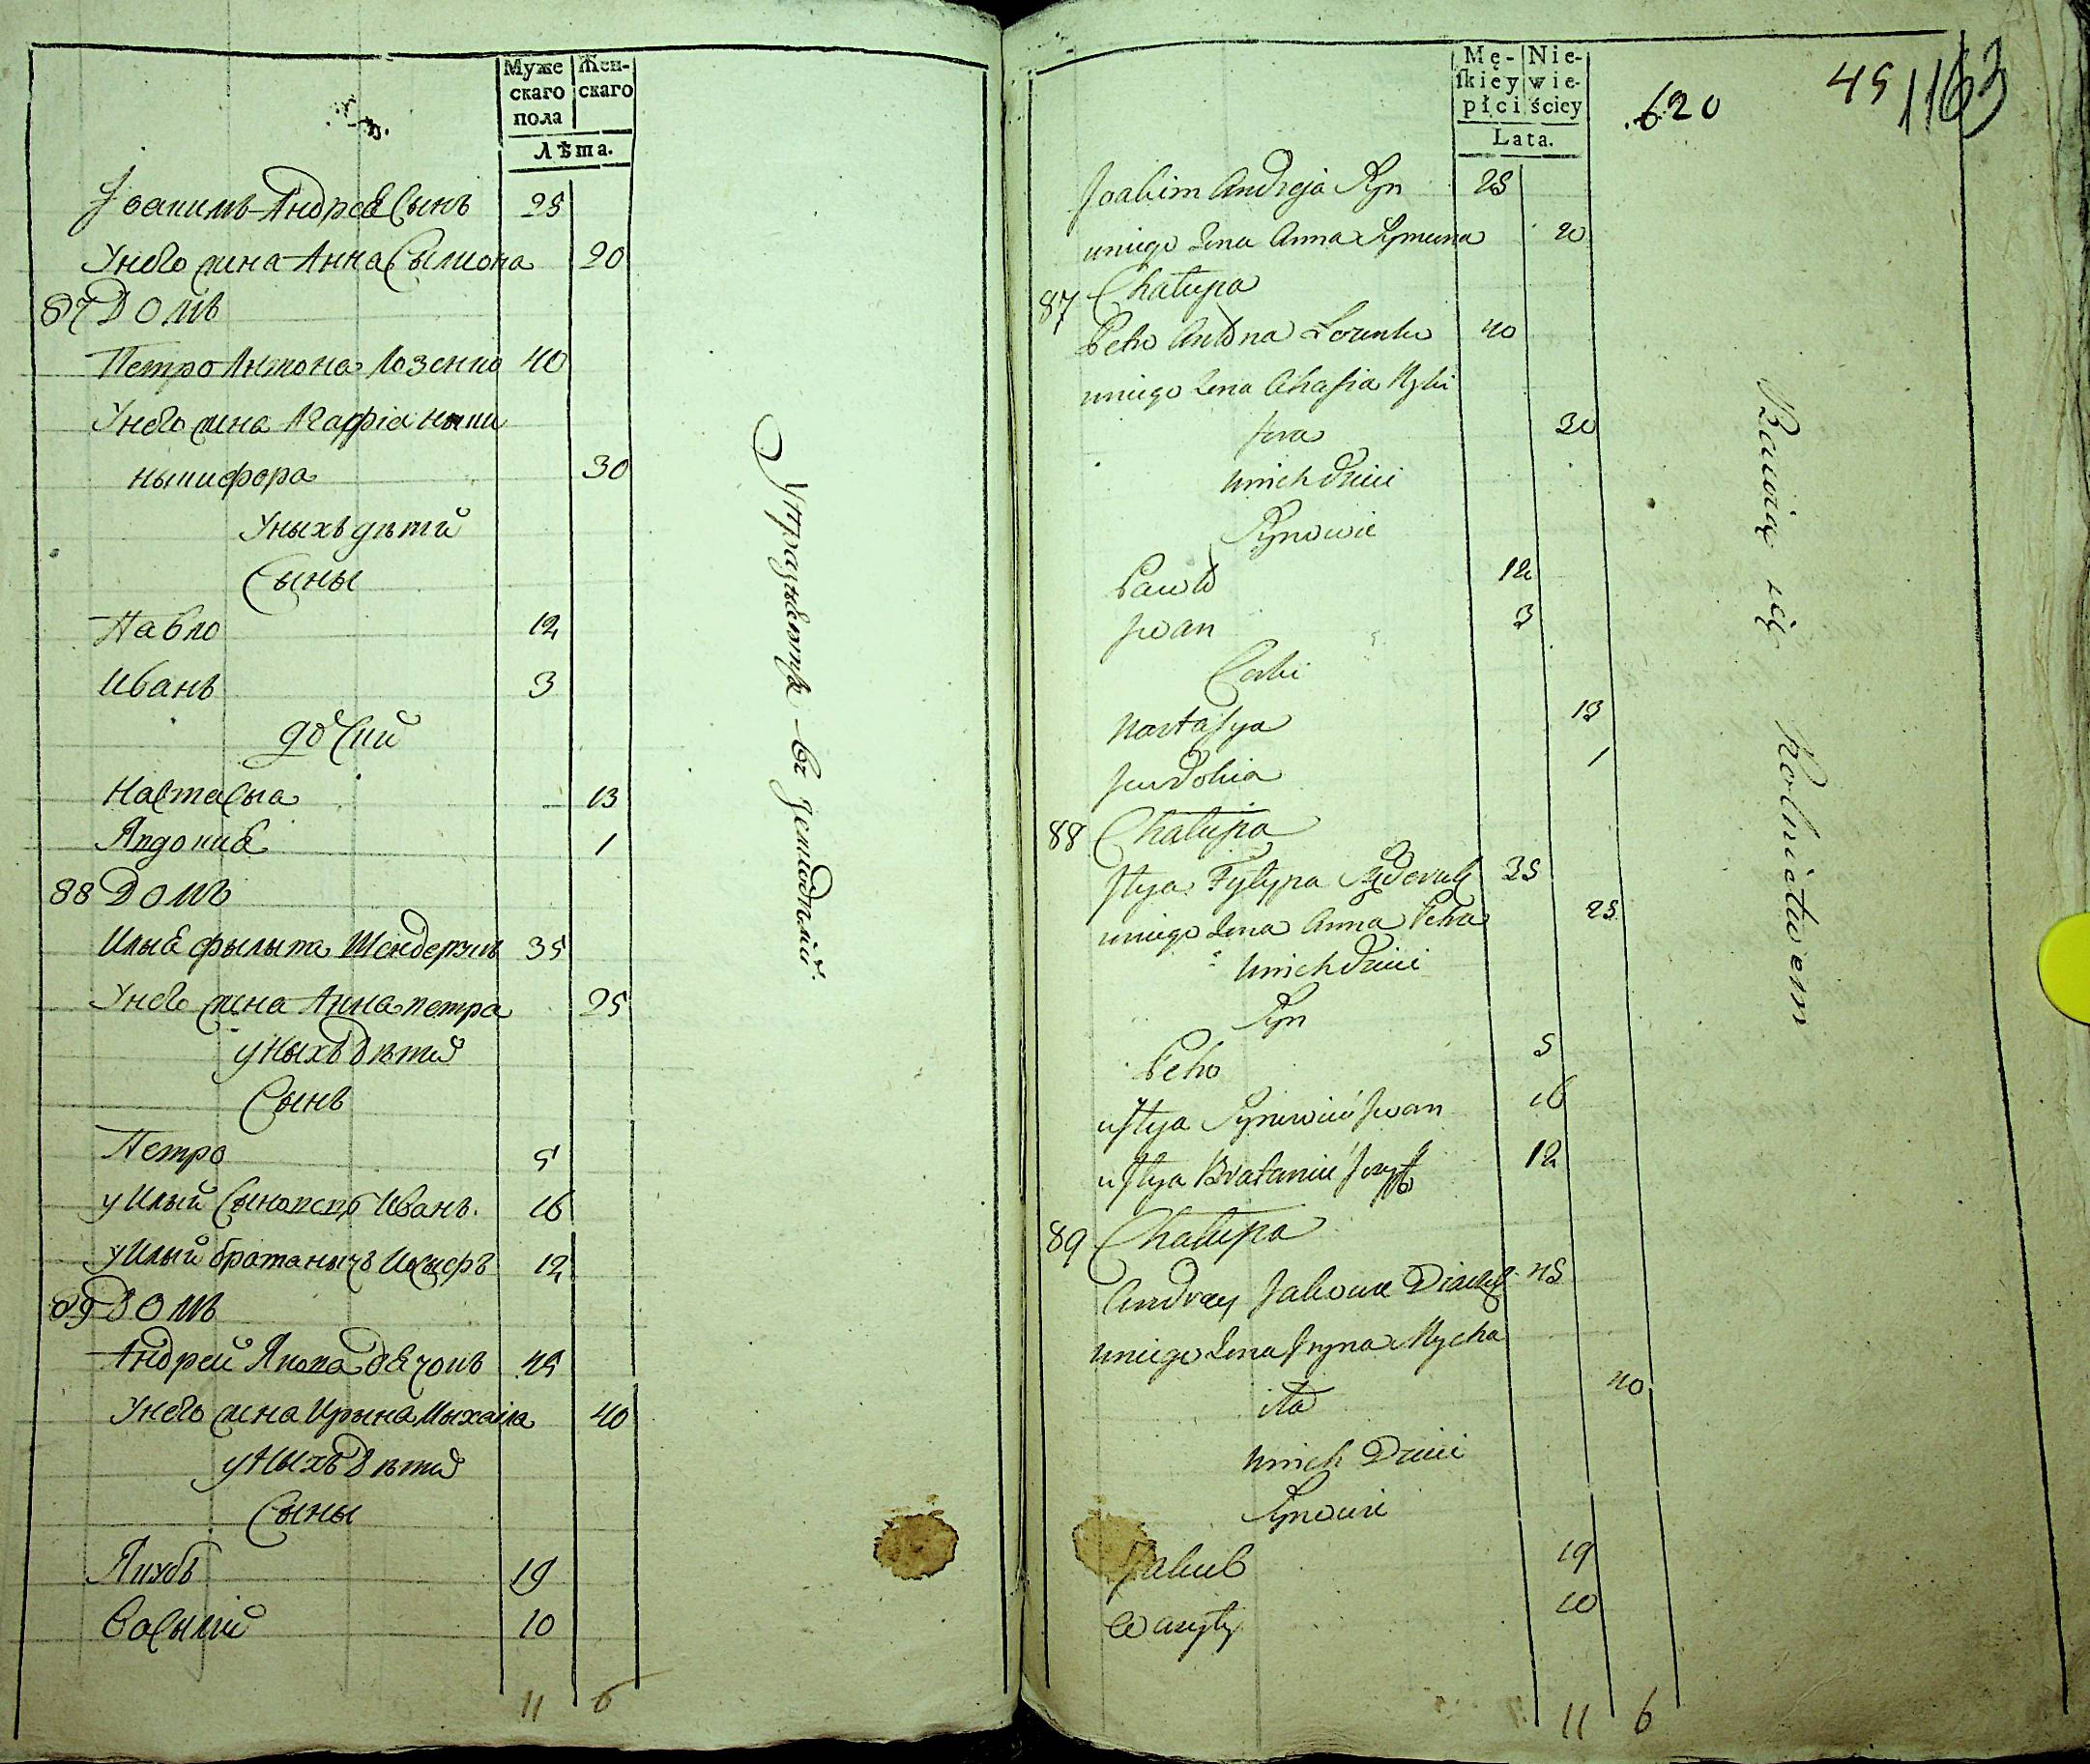 Муже
скаго
пола
Жен-
скаго
Лѣта.
Іоакимъ Андрея Сынъ 25
Унего жена Анна Сымона 20
87 Домъ
Петро Антона Лозенко 40
Унего жена Агафіа
ныкифора 30
Уныхъ дѣтй
Сыны
Павло 12
Иванъ 3
дочки
Настасыа 13
Явдокия 1
88 Домъ
Илыя фылыпа 35
Унего жена Анна петра 25
уныхъ дѣтй
Сынъ
Петро 5
у Илый Иванъ. 16
у Илый братанычъ Иосифъ 12
89 Домъ
Андрей Якова дячокъ 45
Унего жена Ирына Мыхаіла 40
уныхъ дѣтй
Сыны
Якубъ 19
Васылій 10
11 6
Упражняются въ Земледѣлій.
Mę-
ſkiey
płci
Nie-
wie-
ściey
Lata.
620
45
1163
Joakim Andreja Syn 25
uniego Żona Anna Symona 20
87 Chałupa
Petro Antona Łozenko 40
uniego Żona Ahafia Nyki
fora 30
unich dzieci
Synowie
Pawło 12
Jwan 3
Corki
Nastasya 13
Jewdokia 1
88 Chałupa
Jlya Fylypa 35
uniego Żona Anna Petra 25
unich dzieci
Syn
Petro 5
u Jlya Jwan 16
u Jlya Bratanic Jozyf 12
89 Chałupa
Andrey Jakowa Diaczok 45
uniego Żona Jryna Mycha
iła 40
unich Dzieci
Synowie
Jakub 19
Wasyly 10
11 6
Bawią się Rolnictwem